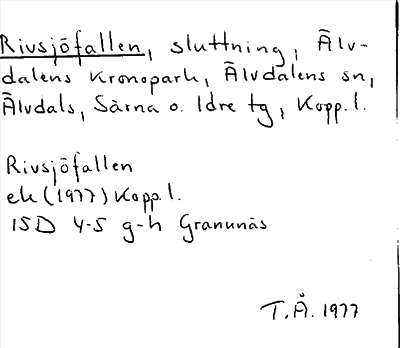 Rivsjöfallen, sluttning, Älv-
dalens kronopark, Älvdalens sn,
Älvdals, Särna o. Idre tg, Kopp.l.
Rivsjöfallen
ek (1977) Kopp.l.
15D 4-5 g-h Granunäs
T.Å. 1977